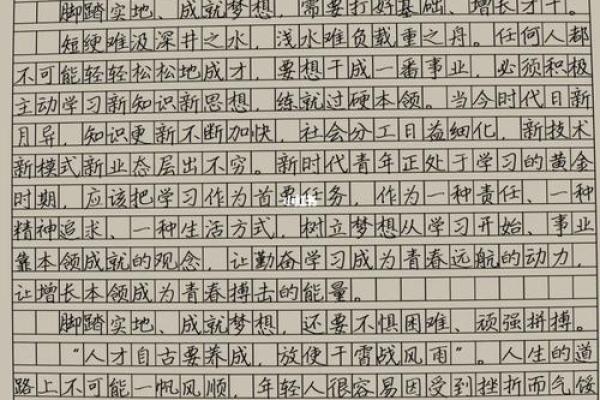 脚踏实地、成就梦想，需要打好基础、增长才干。
短绠难汲深井之水，浅水难负载重之舟。任何人都
不可能轻轻松松地成才，要想干成一番事业，必须积极
主动学习新知识新思想，练就过硬本领。当今时代日新
月异，知识更新不断加快，社会分工日益细化，新技术
新模式新业态层出不穷。新时代青年正处于学习的黄金
时期，应该把学习作为首要任务，作为一种责任、一种
精神追求、一种生活方式，树立梦想从学习开始、事业
靠本领成就的观念，让勤奋学习成为青春远航的动力，
让增长本领成为青春搏击的能量。
脚踏实地、成就梦想，还要不惧困难、顽强拼搏。
“人才自古要养成，放使干霄战风雨”。人生的道
路上不可能一帆风顺，年轻人很容易因受到挫折而气馁